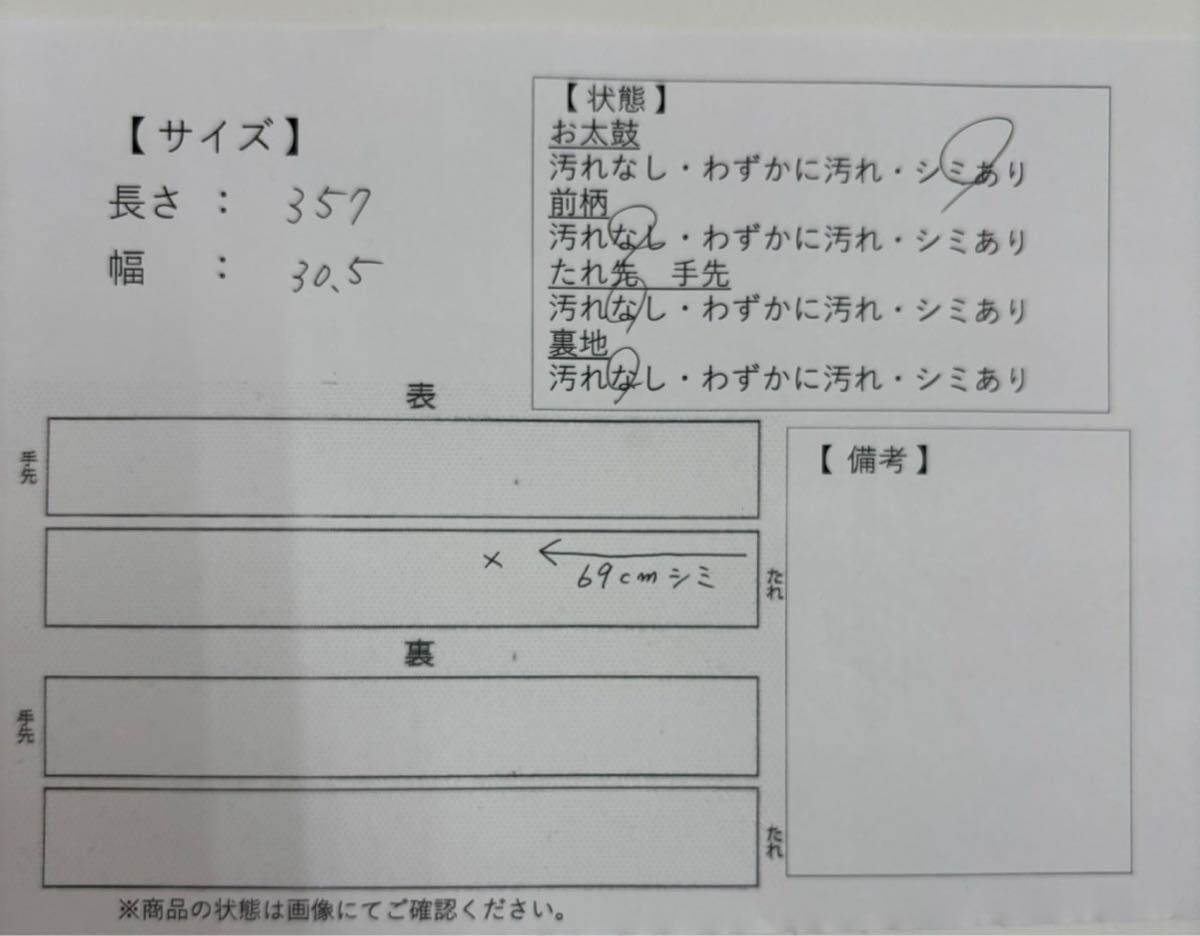 【 サイズ 】
長さ ： 357
幅 ： 30.5
【 状態 】
お太鼓
汚れなし・わずかに汚れ・シミあり
前柄
汚れなし・わずかに汚れ・シミあり
たれ先 手先
汚れなし・わずかに汚れ・シミあり
裏地
汚れなし・わずかに汚れ・シミあり
表
手先
× 69cmシミ
たれ
裏
手先
たれ
【 備考 】
※商品の状態は画像にてご確認ください。